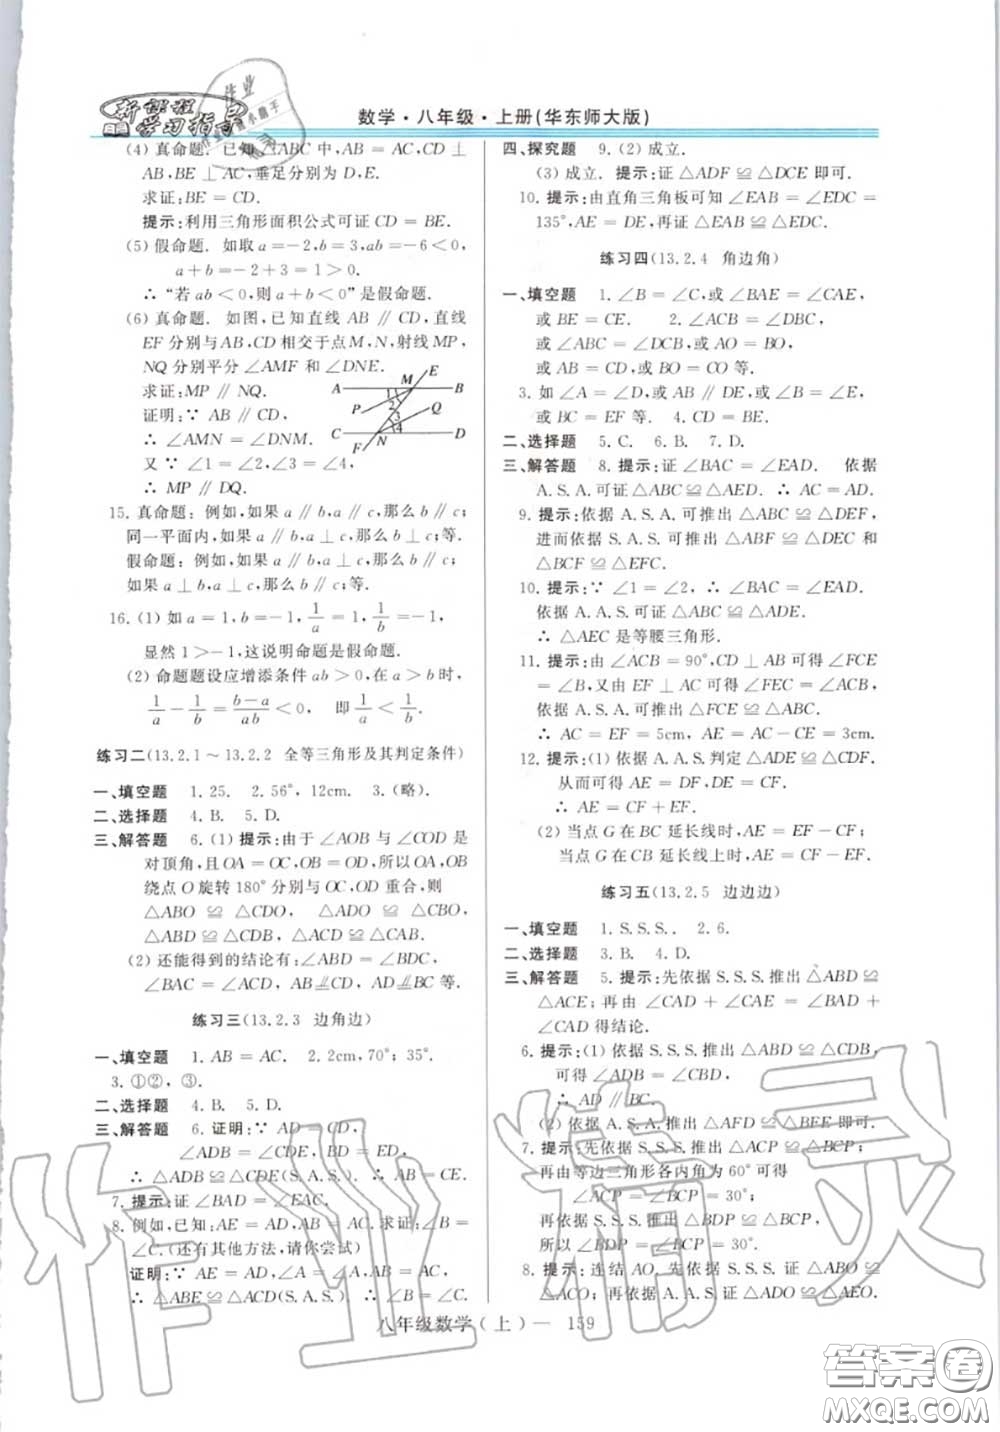 新课程
学习指导
数学·八年级·上册(华东师大版)
(4) 真命题. 已知△ABC中,AB = AC,CD ⊥
AB,BE ⊥ AC,垂足分别为 D,E.
求证:BE = CD.
提示:利用三角形面积公式可证 CD = BE.
(5) 假命题. 如取 a=-2,b=3,ab=-6<0,
a+b=-2+3=1>0.
∴ “若 ab<0,则 a+b<0”是假命题.
(6) 真命题. 如图,已知直线 AB ∥ CD,直线
EF 分别与AB,CD相交于点M,N,射线MP,
NQ 分别平分 ∠AMF 和 ∠DNE.
求证:MP ∥ NQ.
证明:∵ AB ∥ CD,
∴ ∠AMN = ∠DNM.
又 ∵ ∠1 = ∠2,∠3 = ∠4,
∴ MP ∥ DQ.
A M E B
P 1 2 Q
C 3 4 N D
F
15. 真命题:例如,如果 a∥b,a∥c,那么 b∥c;
同一平面内,如果 a⊥b,a⊥c,那么 b∥c;等.
假命题:例如,如果 a∥b,a⊥c,那么 b∥c;
如果 a⊥b,a⊥c,那么 b∥c;等.
16. (1) 如 a=1,b=-1,1/a=1,1/b=-1,
显然 1>-1,这说明命题是假命题.
(2) 命题题设应增添条件 ab>0,在 a>b 时,
1/a - 1/b = (b-a)/ab < 0, 即 1/a < 1/b.
练习二(13.2.1～13.2.2 全等三角形及其判定条件)
一、填空题 1.25. 2.56°,12cm. 3.(略).
二、选择题 4.B. 5.D.
三、解答题 6.(1) 提示:由于 ∠AOB 与 ∠COD 是
对顶角,且OA = OC,OB = OD,所以OA,OB
绕点 O 旋转 180° 分别与 OC,OD 重合,则
△ABO ≌ △CDO, △ADO ≌ △CBO,
△ABD ≌ △CDB, △ACD ≌ △CAB.
(2) 还能得到的结论有:∠ABD = ∠BDC,
∠BAC = ∠ACD, AB⫽CD, AD⫽BC等.
练习三(13.2.3 边角边)
一、填空题 1. AB = AC. 2. 2cm,70°;35°.
3. ①②,③.
二、选择题 4.B. 5.D.
三、解答题 6. 证明:∵ AD = CD,
∠ADB = ∠CDE,BD = ED,
∴ △ADB ≌ △CDE(S.A.S.) ∴ AB = CE.
7. 提示:证 ∠BAD = ∠EAC.
8. 例如,已知:AE = AD,AB = AC. 求证:∠B =
∠C.(还有其他方法,请你尝试)
证明:∵ AE = AD,∠A = ∠A,AB = AC,
∴ △ABE ≌ △ACD(S.A.S.) ∴ ∠B = ∠C.
四、探究题 9.(2) 成立.
(3) 成立. 提示:证 △ADF ≌ △DCE 即可.
10. 提示:由直角三角板可知 ∠EAB = ∠EDC =
135°,AE = DE,再证 △EAB ≌ △EDC.
练习四(13.2.4 角边角)
一、填空题 1. ∠B = ∠C,或 ∠BAE = ∠CAE,
或 BE = CE. 2. ∠ACB = ∠DBC,
或 ∠ABC = ∠DCB,或 AO = BO,
或 AC = BD,或 BO = CO 等.
3. 如 ∠A = ∠D,或 AB ∥ DE,或 ∠B = ∠E,
或 BC = EF 等. 4. CD = BE.
二、选择题 5.C. 6.B. 7.D.
三、解答题 8. 提示:证 ∠BAC = ∠EAD. 依据
A.S.A. 可证 △ABC ≌ △AED. ∴ AC = AD.
9. 提示:依据 A.S.A. 可推出 △ABC ≌ △DEF,
进而依据 S.A.S. 可推出 △ABF ≌ △DEC 和
△BCF ≌ △EFC.
10. 提示:∵ ∠1 = ∠2, ∴ ∠BAC = ∠EAD.
依据 A.A.S. 可证 △ABC ≌ △ADE.
∴ △AEC 是等腰三角形.
11. 提示:由 ∠ACB = 90°,CD ⊥ AB 可得 ∠FCE
= ∠B,又由 EF ⊥ AC 可得 ∠FEC = ∠ACB,
依据 A.S.A. 可推出 △FCE ≌ △ABC.
∴ AC = EF = 5cm, AE = AC − CE = 3cm.
12. 提示:(1) 依据 A.A.S. 判定 △ADE ≌ △CDF.
从而可得 AE = DF,DE = CF.
∴ AE = CF + EF.
(2) 当点 G 在 BC 延长线时,AE = EF − CF;
当点 G 在 CB 延长线上时,AE = CF − EF.
练习五(13.2.5 边边边)
一、填空题 1.S.S.S. 2.6.
二、选择题 3.B. 4.D.
三、解答题 5. 提示:先依据 S.S.S. 推出 △ABD ≌
△ACE;再由 ∠CAD + ∠CAE = ∠BAD +
∠CAD 得结论.
6. 提示:(1) 依据 S.S.S. 推出 △ABD ≌ △CDB,
可得 ∠ADB = ∠CBD,
∴ AD ∥ BC.
(2) 依据 S.A.S. 推出 △AFD ≌ △BEE 即可.
7. 提示:先依据 S.S.S. 推出 △ACP ≌ △BCP;
再由等边三角形各内角为 60° 可得
∠ACP = ∠BCP = 30°;
再依据 S.S.S. 推出 △BDP ≌ △BCP,
所以 ∠BDP = ∠BCP = 30°.
8. 提示:连结 AO,先依据 S.S.S. 证 △ABO ≌
△ACO,再依据 A.A.S. 证 △ADO ≌ △AEO.
八年级数学(上)— 159
作业精灵
答案圈
MXQE.COM